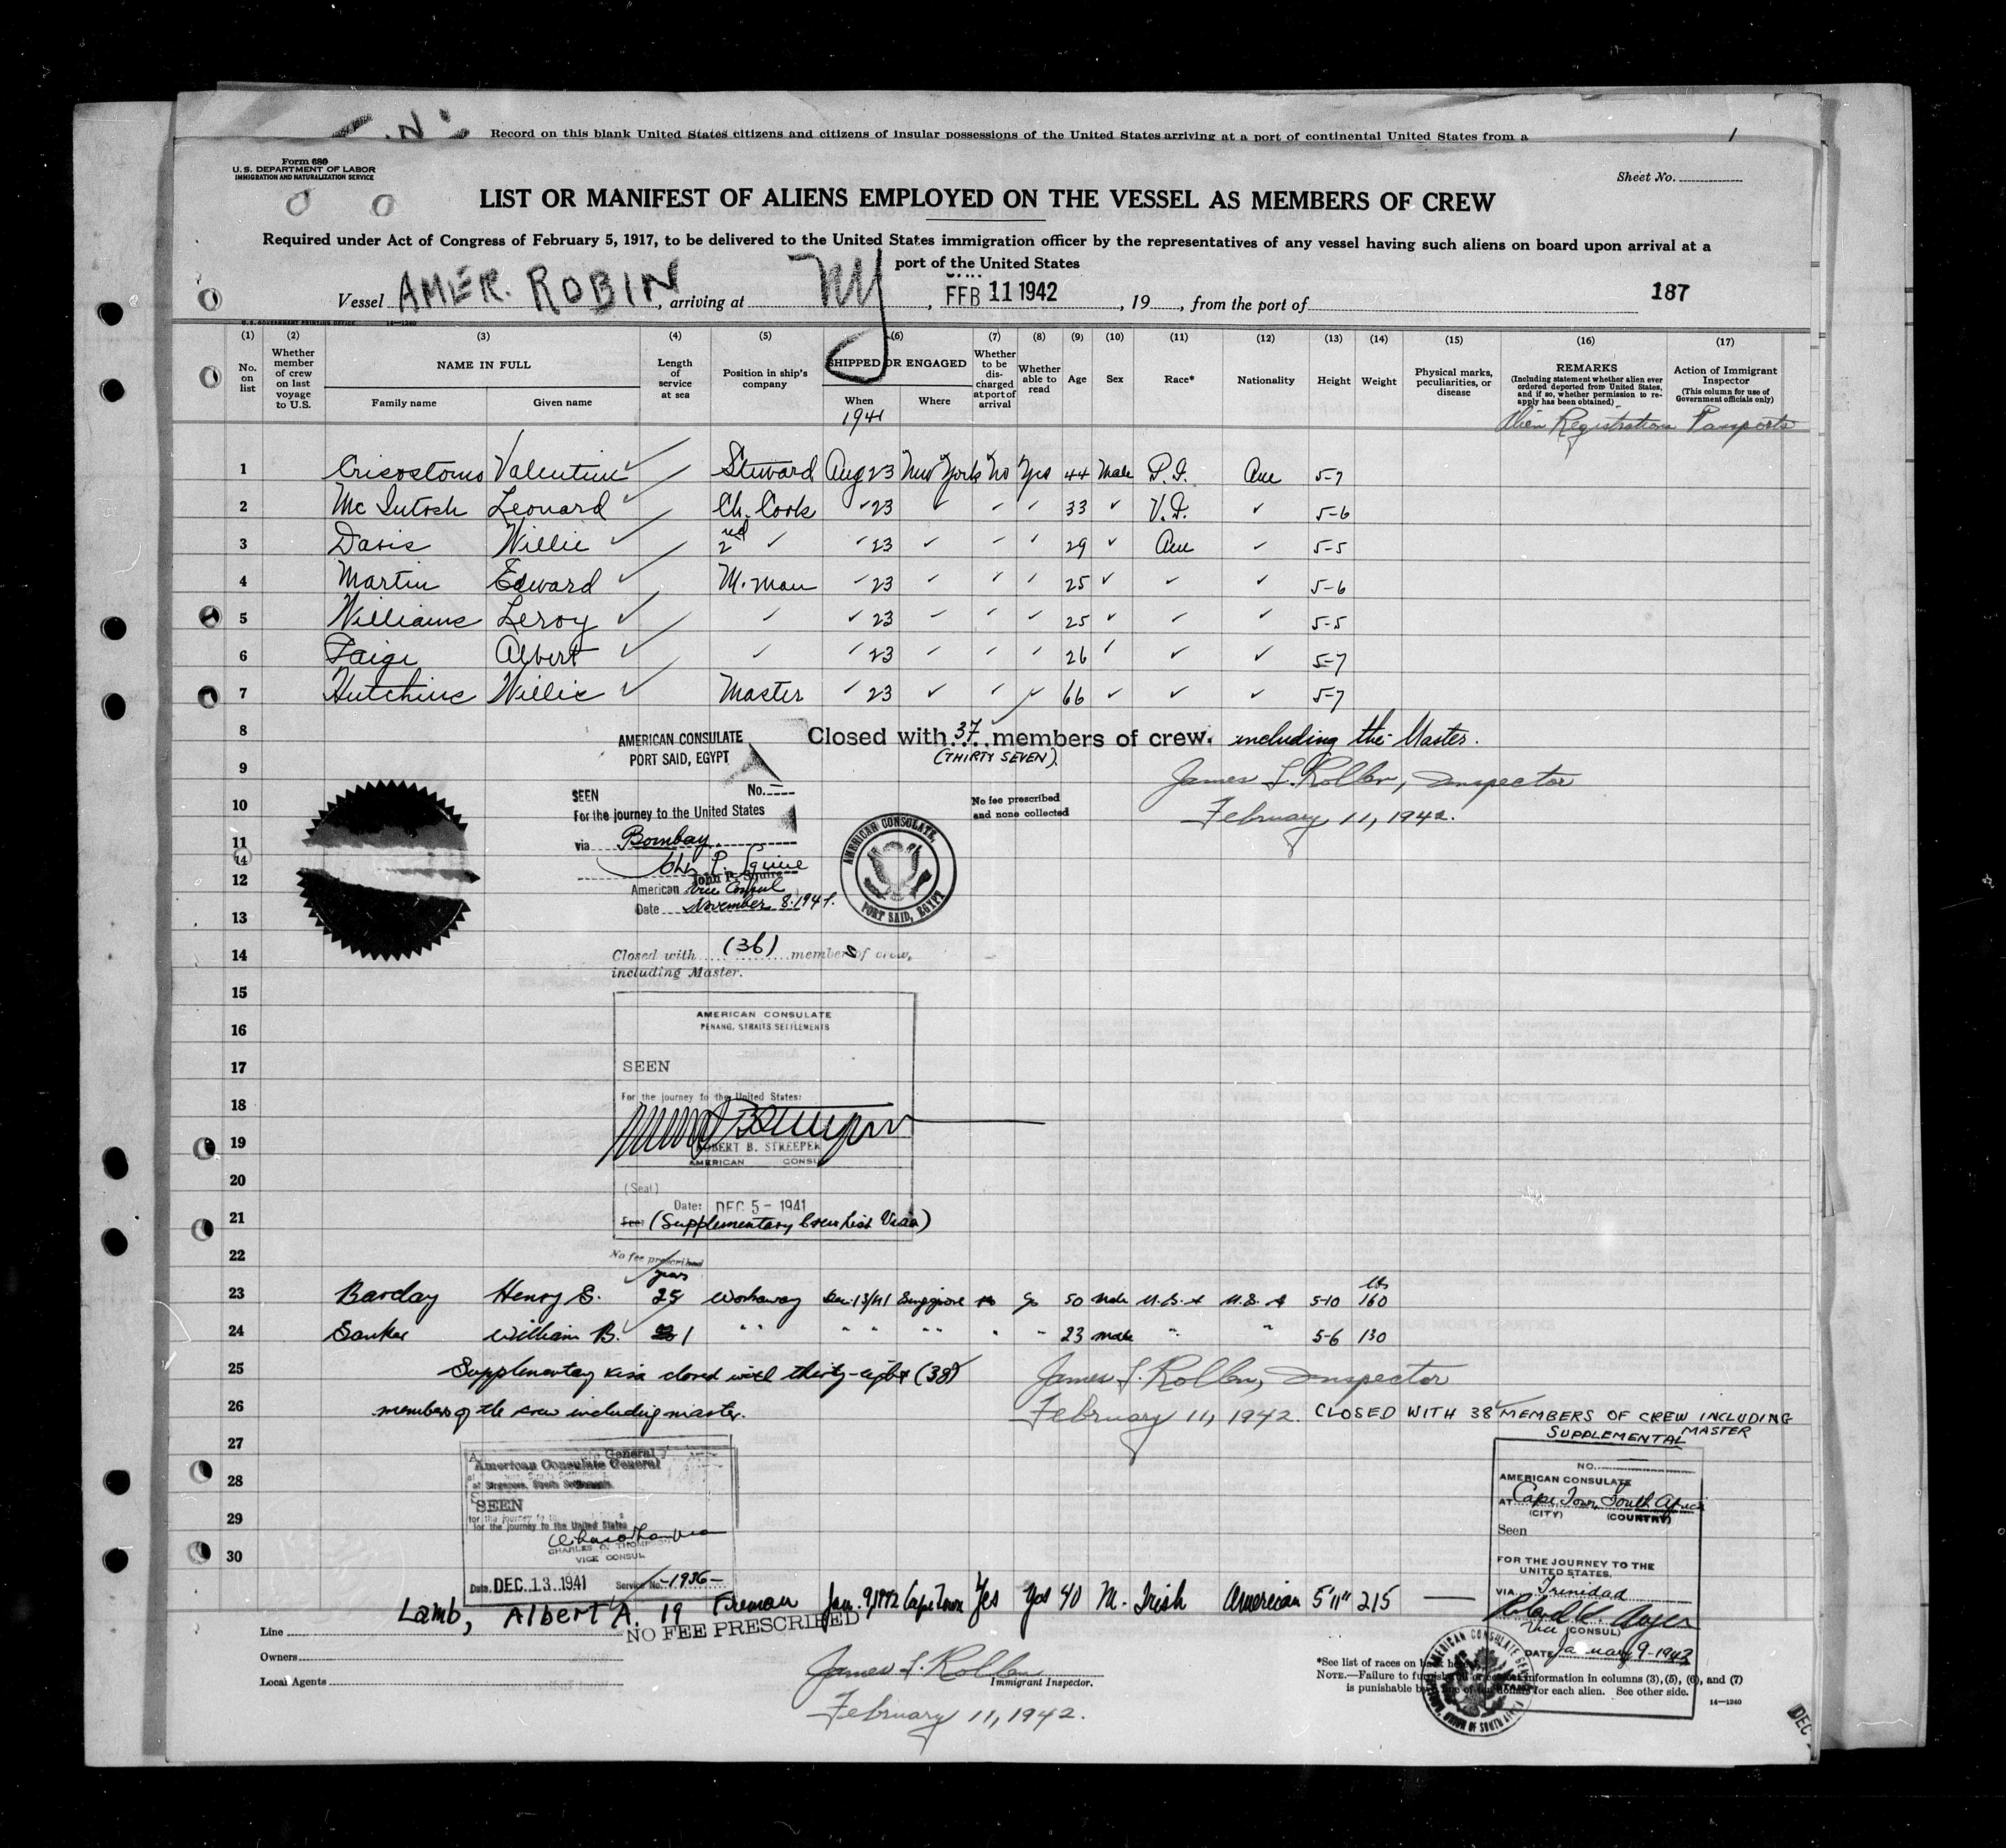 Record on this blank United States citizens and citizens of insular possessions of the United States arriving at a port of continental United States from a
1
Form 680
U. S. DEPARTMENT OF LABOR
IMMIGRATION AND NATURALIZATION SERVICE
Sheet No.
LIST OR MANIFEST OF ALIENS EMPLOYED ON THE VESSEL AS MEMBERS OF CREW
Required under Act of Congress of February 5, 1917, to be delivered to the United States immigration officer by the representatives of any vessel having such aliens on board upon arrival at a
port of the United States
Vessel AMER. ROBIN, arriving at NY, FEB 11 1942, 19, from the port of 187
U. S. GOVERNMENT PRINTING OFFICE 14-1240
(1) (2) (3) (4) (5) (6) (7) (8) (9) (10) (11) (12) (13) (14) (15) (16) (17)
No. on list
Whether member of crew on last voyage to U.S.
NAME IN FULL
Family name Given name
Length of service at sea
Position in ship's company
SHIPPED OR ENGAGED
When Where
1941
Whether to be discharged at port of arrival
Whether able to read
Age
Sex
Race*
Nationality
Height
Weight
Physical marks, peculiarities, or disease
REMARKS
(Including statement whether alien ever ordered deported from United States, and if so, whether permission to reapply has been obtained)
Action of Immigrant Inspector
(This column for use of Government officials only)
Alien Registration Passports
1 Crisostomo Valentine ✓ Steward Aug 23 New York No Yes 44 Male P.I. Am 5-7
2 McIntosh Leonard ✓ Ch. Cook ✓ 23 ✓ ✓ ✓ 33 ✓ V.I. ✓ 5-6
3 Davis Willie ✓ 2nd ✓ ✓ 23 ✓ ✓ ✓ 29 ✓ Am ✓ 5-5
4 Martin Edward ✓ M. man ✓ 23 ✓ ✓ ✓ 25 ✓ ✓ ✓ 5-6
5 Williams Leroy ✓ ✓ ✓ 23 ✓ ✓ ✓ 25 ✓ ✓ ✓ 5-5
6 Paige Albert ✓ ✓ ✓ 23 ✓ ✓ ✓ 26 ✓ ✓ ✓ 5-7
7 Hutchins Willie ✓ Master ✓ 23 ✓ ✓ ✓ 66 ✓ ✓ ✓ 5-7
8 Closed with 37 members of crew. including the Master.
(THIRTY SEVEN).
AMERICAN CONSULATE
PORT SAID, EGYPT
9 James L. Rollen, Inspector
February 11, 1942.
SEEN No.
10 For the journey to the United States
No fee prescribed
and none collected
11 via Bombay
14
John P. Squire
12 American Vice Consul
Date November 8, 1941.
AMERICAN CONSULATE, PORT SAID, EGYPT
13
14 Closed with (36) members of crew,
including Master.
15
AMERICAN CONSULATE
16 PENANG, STRAITS SETTLEMENTS
17 SEEN
18 For the journey to the United States:
19 ROBERT B. STREEPER
AMERICAN CONSUL
20 (Seal)
Date: DEC 5 - 1941
21 Fee: (Supplementary Crew List Visa)
22 No fee prescribed
years lbs
23 Barclay Henry S. 25 Workaway Dec. 13/41 Singapore No Yes 50 Male U.S.A U.S.A 5-10 160
24 William B. ✓ 1 " " " " " " " " 23 male " " 5-6 130
25 Supplementary visa closed with thirty-eight (38) James L. Rollen, Inspector
26 members of the crew including master. February 11, 1942. CLOSED WITH 38 MEMBERS OF CREW INCLUDING
MASTER
SUPPLEMENTAL
27
American Consulate General
at Singapore, Straits Settlements
28 SEEN
29 for the journey to the United States
CHARLES O. THOMPSON
VICE CONSUL
30
Date DEC 13 1941 Service No. -1936-
NO.
AMERICAN CONSULATE
AT Cape Town, South Africa
(CITY) (COUNTRY)
Seen
FOR THE JOURNEY TO THE
UNITED STATES,
VIA Trinidad
Vice (CONSUL)
DATE January 9-1942
Lamb, Albert A. 19 Fireman Jan. 9, 1942 Cape Town Yes Yes 40 M. Irish American 5'11" 215 —
NO FEE PRESCRIBED
Line
Owners
Local Agents
James L. Rollen
Immigrant Inspector.
February 11, 1942.
*See list of races on back hereof.
NOTE.—Failure to furnish full or correct information in columns (3), (5), (6), and (7)
is punishable by fine of ten dollars for each alien. See other side.
14—1240
DEC